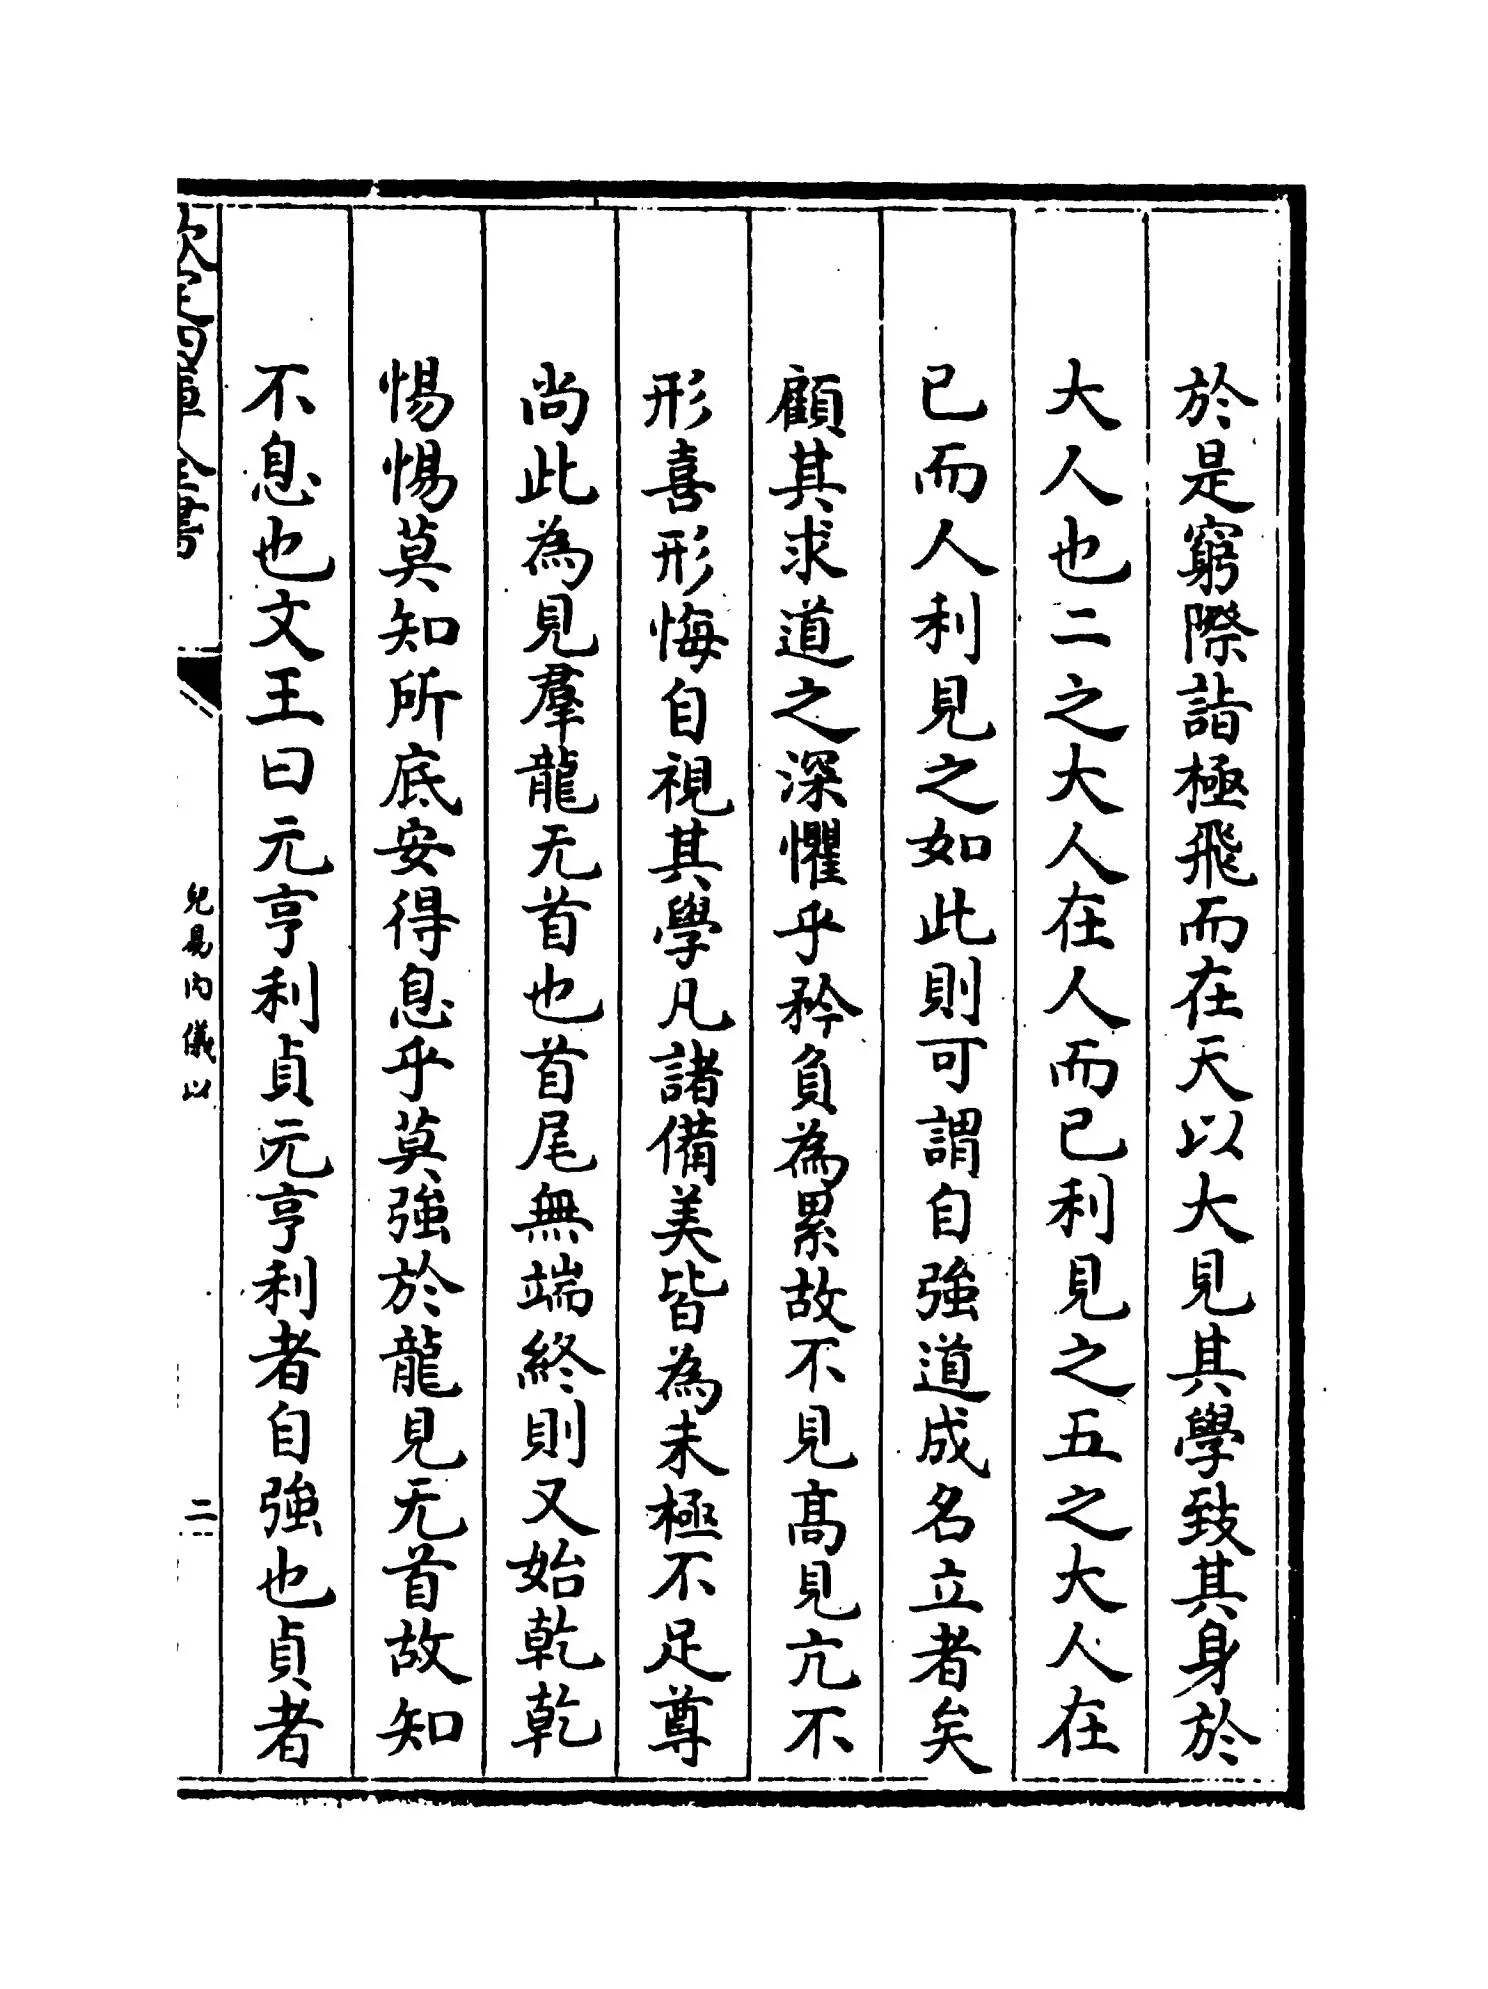 於是窮際詣極飛而在天以大見其學致其身於
大人也二之大人在人而已利見之五之大人在
已而人利見之如此則可謂自強道成名立者矣
顧其求道之深懼乎矜負為累故不見高見亢不
形喜形悔自視其學凡諸備美皆為未極不足尊
尚此為見羣龍无首也首尾無端終則又始乾乾
惕惕莫知所底安得息乎莫強於龍見无首故知
不息也文王曰元亨利貞元亨利者自強也貞者
欽定四庫全書
兒易內儀以
二